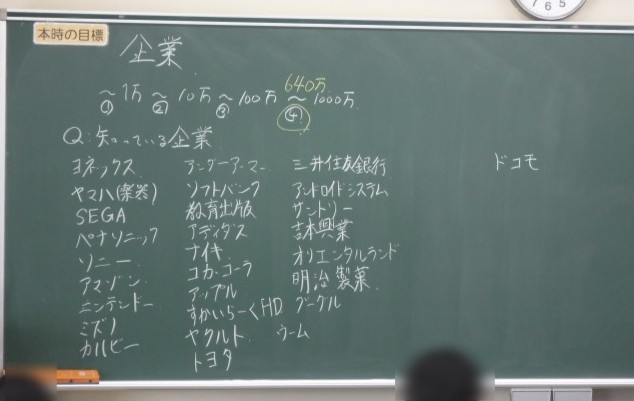 本時の目標
企業
640万
～1万 ～10万 ～100万 ～1000万
① ② ③ ④
Q:知っている企業
ヨネックス
ヤマハ(楽器)
SEGA
パナソニック
ソニー
アマゾン
ニンテンドー
ミズノ
カルビー
アンダーアーマー
ソフトバンク
教育出版
アディダス
ナイキ
コカ・コーラ
アップル
すかいらーくHD
ヤクルト
トヨタ
三井住友銀行
アンドロイドシステム
サントリー
吉本興業
オリエンタルランド
明治製菓
グークル
ウーム
ドコモ
7 6 5